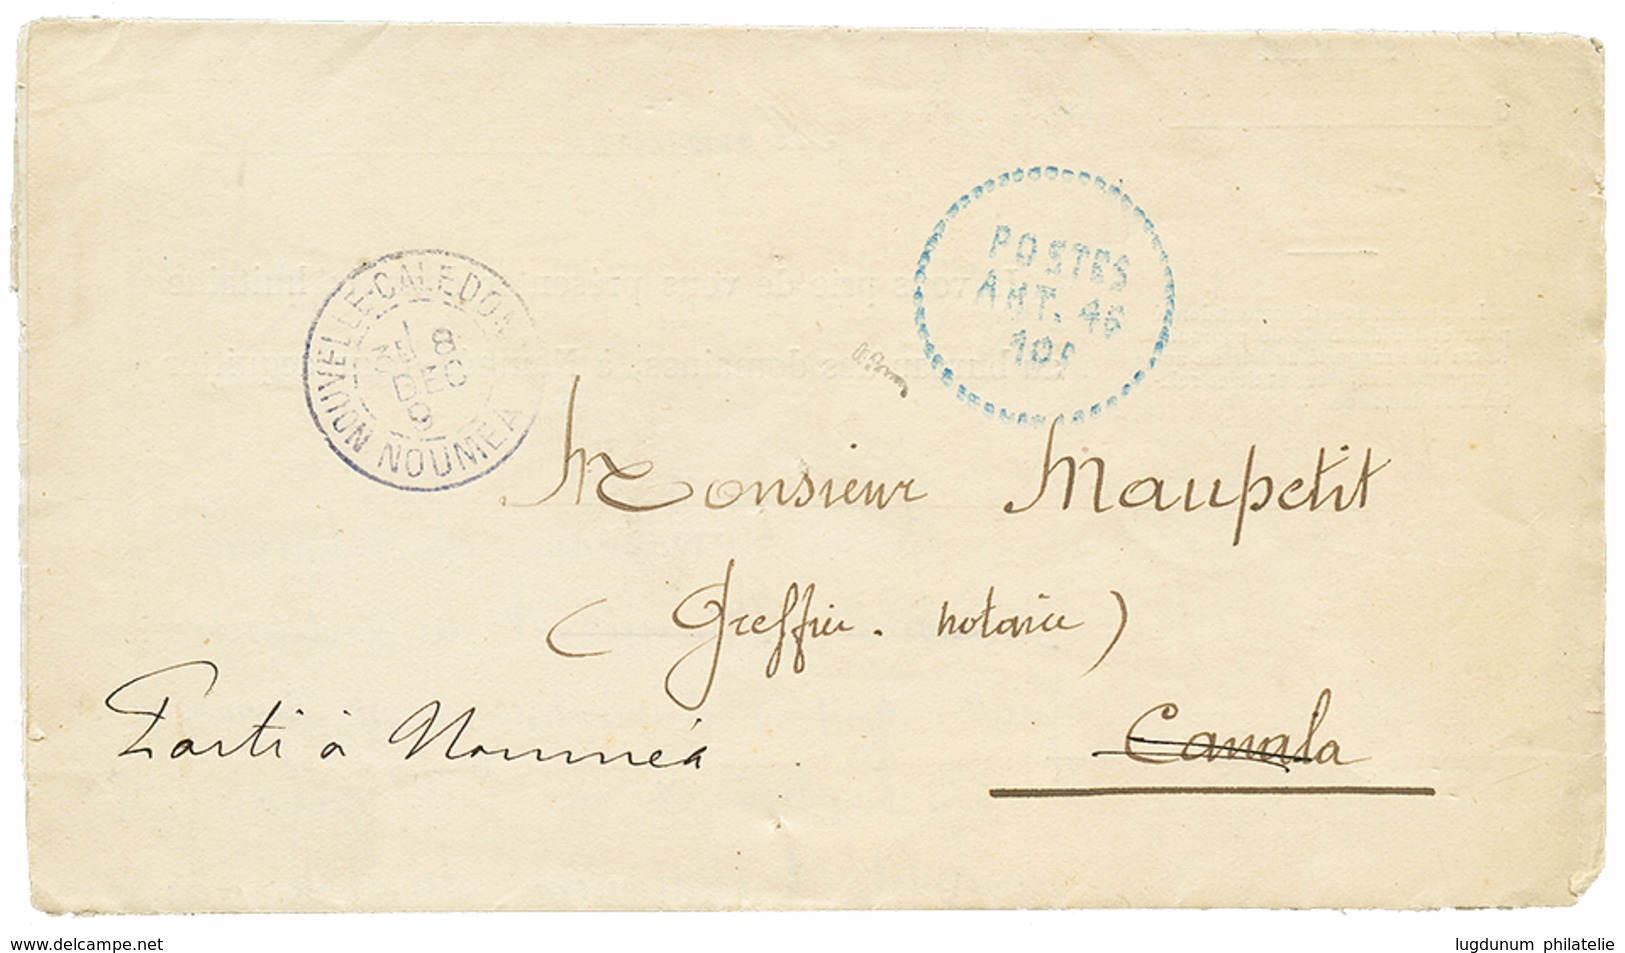 POSTES
ART. 46
NOUVELLE-CALEDON
8
DEC
9
NOUMEA
Monsieur Maupetit
( Greffier. notaire )
Canala
Parti à Nouméa
www.delcampe.net
lugdunum philatelie